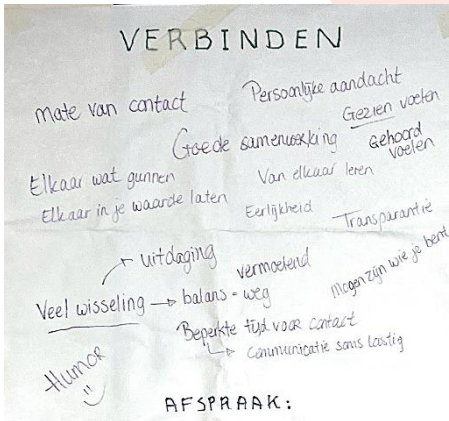 VERBINDEN
Mate van contact
Persoonlijke aandacht
Gezien voelen
Goede samenwerking
Gehoord
voelen
Elkaar wat gunnen
Van elkaar leren
Elkaar in je waarde laten
Eerlijkheid
Transparantie
uitdaging
vermoeiend
Mogen zijn wie je bent
Veel wisseling → balans = weg
Beperkte tijd voor contact
communicatie soms lastig
Humor
AFSPRAAK: